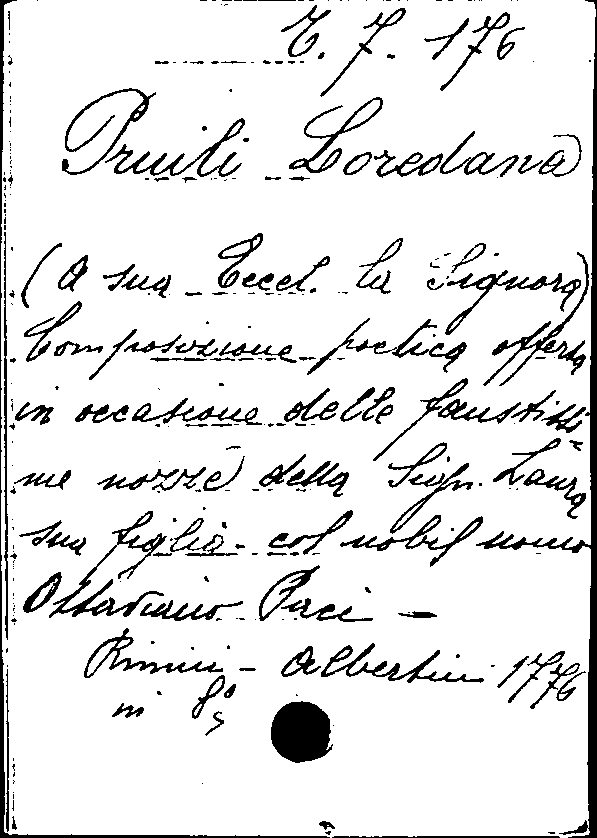 C. 7. 176
Priuli Loredana
(A sua Eccel. la Signora)
Composizione poetica offerta
in occasione delle faustissi=
me nozze della Sign. Laura
sua figlia col nobil uomo
Ottaviano Paci —
Rimini - Albertini 1776
in 8º